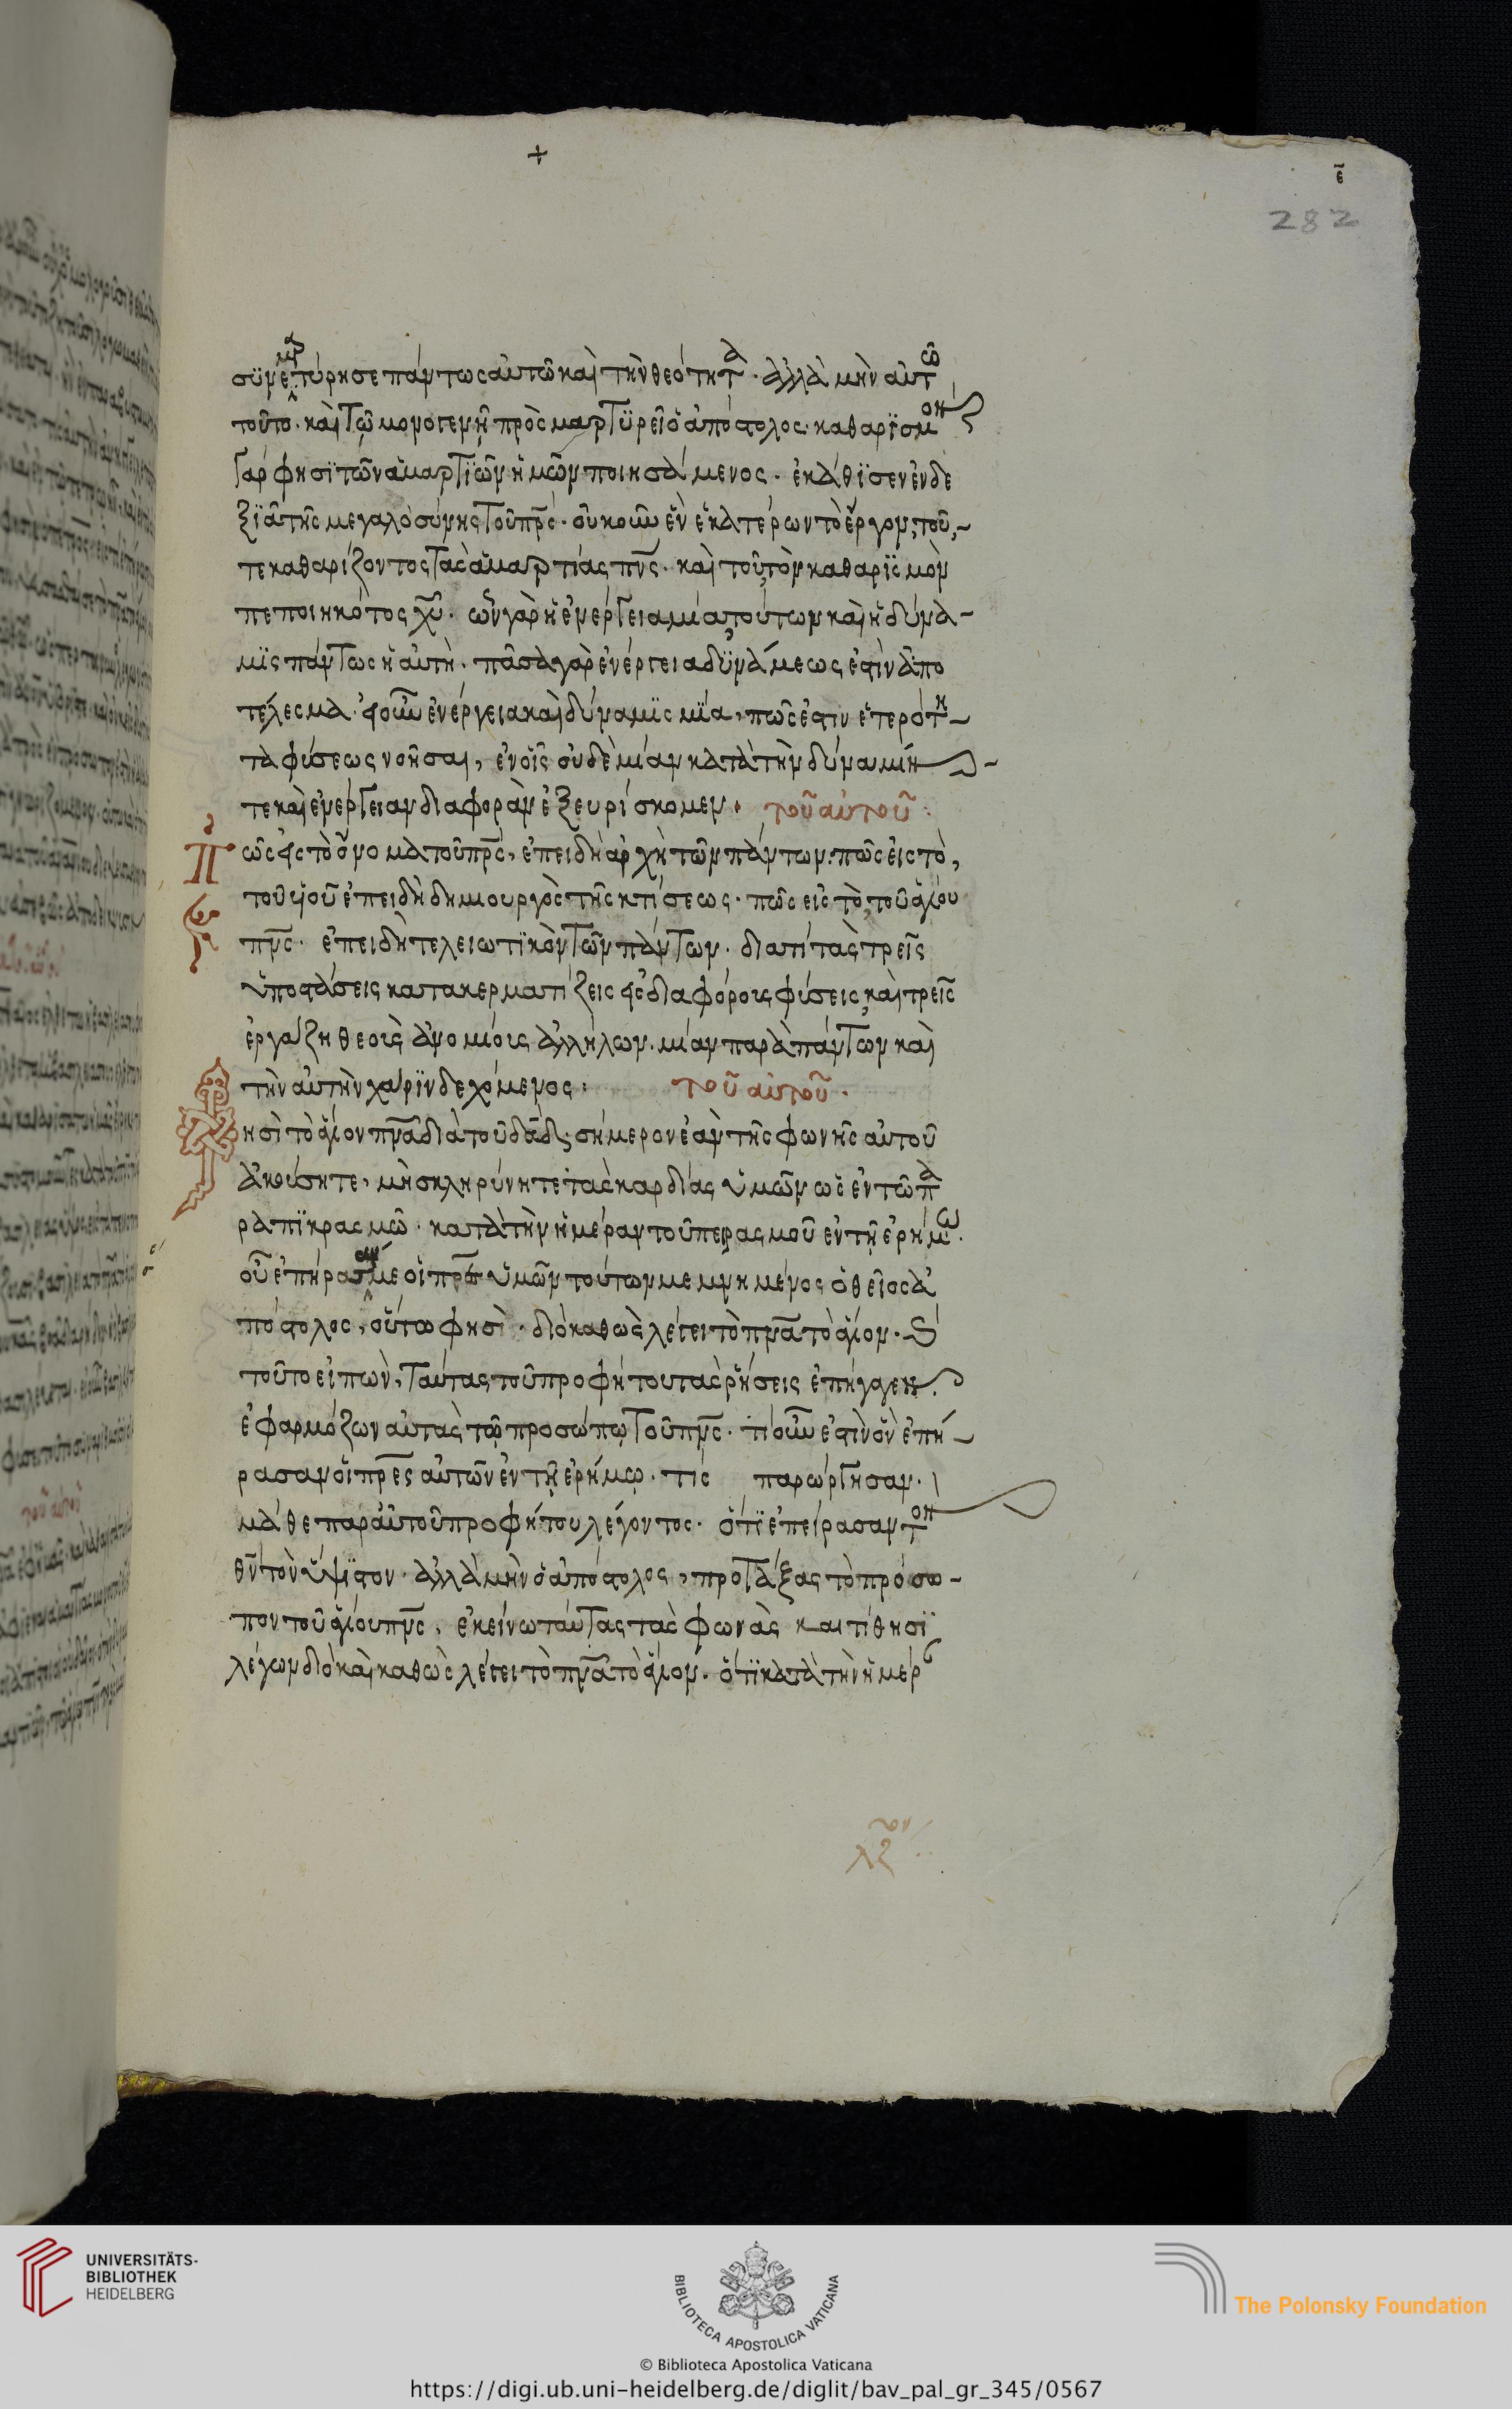 +
ε̄
282
συνεμαρτύρησε πάντως αὐτῶ καὶ τὴν θεότητα· ἀλλὰ μὴν αὐτῶ
τοῦτο· καὶ τῶ μονογενῆ προσμαρτϋρεῖ ὁ ἀπόστολος· καθαρϊσμον
γάρ φησϊ τῶν ἁμαρτϊῶν ἡμῶν ποιησάμενος· ἐκάθϊσεν ἐν δε
ξϊᾶ τῆς μεγαλοσύνης τοῦ πρ̅ς· οὐκοῦν ἓν ἑκατέρων τὸ ἔργον, τοῦ,-
τε καθαρίζοντος τὰς ἁμαρτίας πν̅ς· καὶ τοῦ τὸν καθαρϊσμὸν
πεποιηκότος χῦ· ὧν γὰρ ἡ ἐνέργεια μία, τούτων καὶ ἡ δύνα-
μϊς πάντως ἡ αὐτὴ· πᾶσα γὰρ ἐνέργεια δϋνάμεως ἐστὶν ἀπο
τέλεσμα· εἰ οὖν ἐνέργεια καὶ δύναμϊς μϊα, πῶς ἐστιν ἑτερότη-
τα φύσεως νοῆσαι, ἐν οἷς οὐδὲ μίαν κατὰ τὴν δύναμιν -
τε καὶ ἐνέργειαν διαφορὰν ἐξευρίσκομεν· τοῦ αὐτοῦ:
Πῶς εἰς τὸ ὄνομα τοῦ πρ̅ς, ἐπειδὴ ἀρχὴ τῶν πάντων· πῶς εἰς τὸ,
τοῦ υἱοῦ ἐπειδὴ δημιουργὸς τῆς κτίσεως· πῶς εἰς τὸ, τοῦ ἁγίου
πν̅ς· ἐπειδὴ τελειωτϊκὸν τῶν πάντων· διατί τὰς τρεῖς
ὑποστάσεις κατακερματίζεις εἰς διαφόρους φύσεις, καὶ τρεῖς
ἐργάζη θεοὺς ἀνομίους ἀλλήλων· μίαν παρὰ πάντων καὶ
τὴν αὐτὴν χάρϊν δεχόμενος: τοῦ αὐτοῦ·
Φησὶ τὸ ἅγιον πν̅α διὰ τοῦ δᾱδ· σήμερον ἐὰν τῆς φωνῆς αὐτοῦ
ἀκούσητε, μὴ σκληρύνητε τὰς καρδίας ὑμῶν ὡς ἐν τῶ πα
ραπϊκρασμῶ· κατὰ τὴν ἡμέραν τοῦ πειρασμοῦ ἐν τῆ ἐρήμω·
οὗ ἐπήρασάν με οἱ πρ̅ες ὑμῶν τούτων μεμνημένος ὁ θεῖος ἀ
πόστολος, οὕτω φησὶ· διὸ καθὼς λέγει τὸ πν̅α τὸ ἅγιον·
τοῦτο εἰπὼν, ταύτας τοῦ προφήτου τὰς ῥήσεις ἐπήγαγεν·
ἐφαρμόζων αὐτὰς τῶ προσώπω τοῦ πν̅ς· τί οὖν ἐστὶν ὃν ἐπή-
ρασαν οἱ πρ̅ες αὐτῶν ἐν τῆ ἐρήμω· τίς παρώργησαν·
μάθε παρ' αὐτοῦ προφήτου λέγοντος· ὅτϊ ἐπείρασαν τον
θν̅ τὸν ὕψϊστον· ἀλλὰ μὴν ὁ ἀπόστολος, προτάξας τὸ πρόσω-
πον τοῦ ἁγίου πν̅ς, ἐκείνω ταύτας τὰς φωνὰς κατίθησϊ
λέγων διὸ καὶ καθὼς λέγει τὸ πν̅α τὸ ἅγιον· ὅτϊ κατὰ τὴν ἡμέρ
UNIVERSITÄTS-
BIBLIOTHEK
HEIDELBERG
BIBLIOTECA APOSTOLICA VATICANA
The Polonsky Foundation
© Biblioteca Apostolica Vaticana
https://digi.ub.uni-heidelberg.de/diglit/bav_pal_gr_345/0567